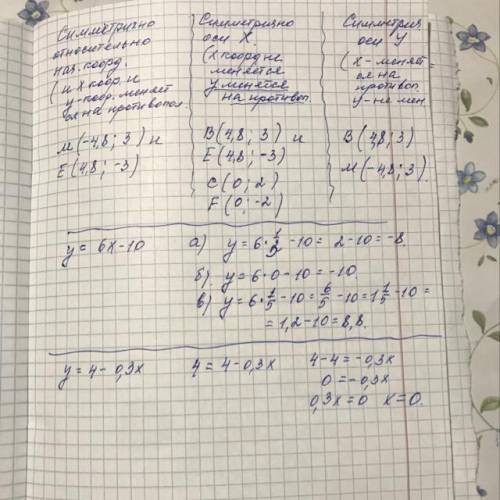 Симметрично
относительно
нач. коорд.
(и х коор. и
у-коор. меняет
ся на противопол.
М(-4,8; 3) и
Е(4,8; -3)
Симметрично
оси Х.
(х коорд не
меняется
у меняется
на противоп.
В(4,8; 3) и
Е(4,8; -3)
С(0; 2)
F(0; -2)
Симметрич.
оси У
(х - меняет=
ся на
противоп.
у-не мен.
В(4,8; 3)
М(-4,8; 3).
у = 6х-10
а) у = 6·
-10 = 2-10 = -8.
б). у = 6·0-10 = -10.
в) у = 6·1/5 -10 = 6/5 -10 = 1 1/5 -10 =
= 1,2-10 = 8,8.
у = 4 - 0,3х
4 = 4 - 0,3х
4-4 = -0,3х
0 = -0,3х
0,3х = 0 х = 0.